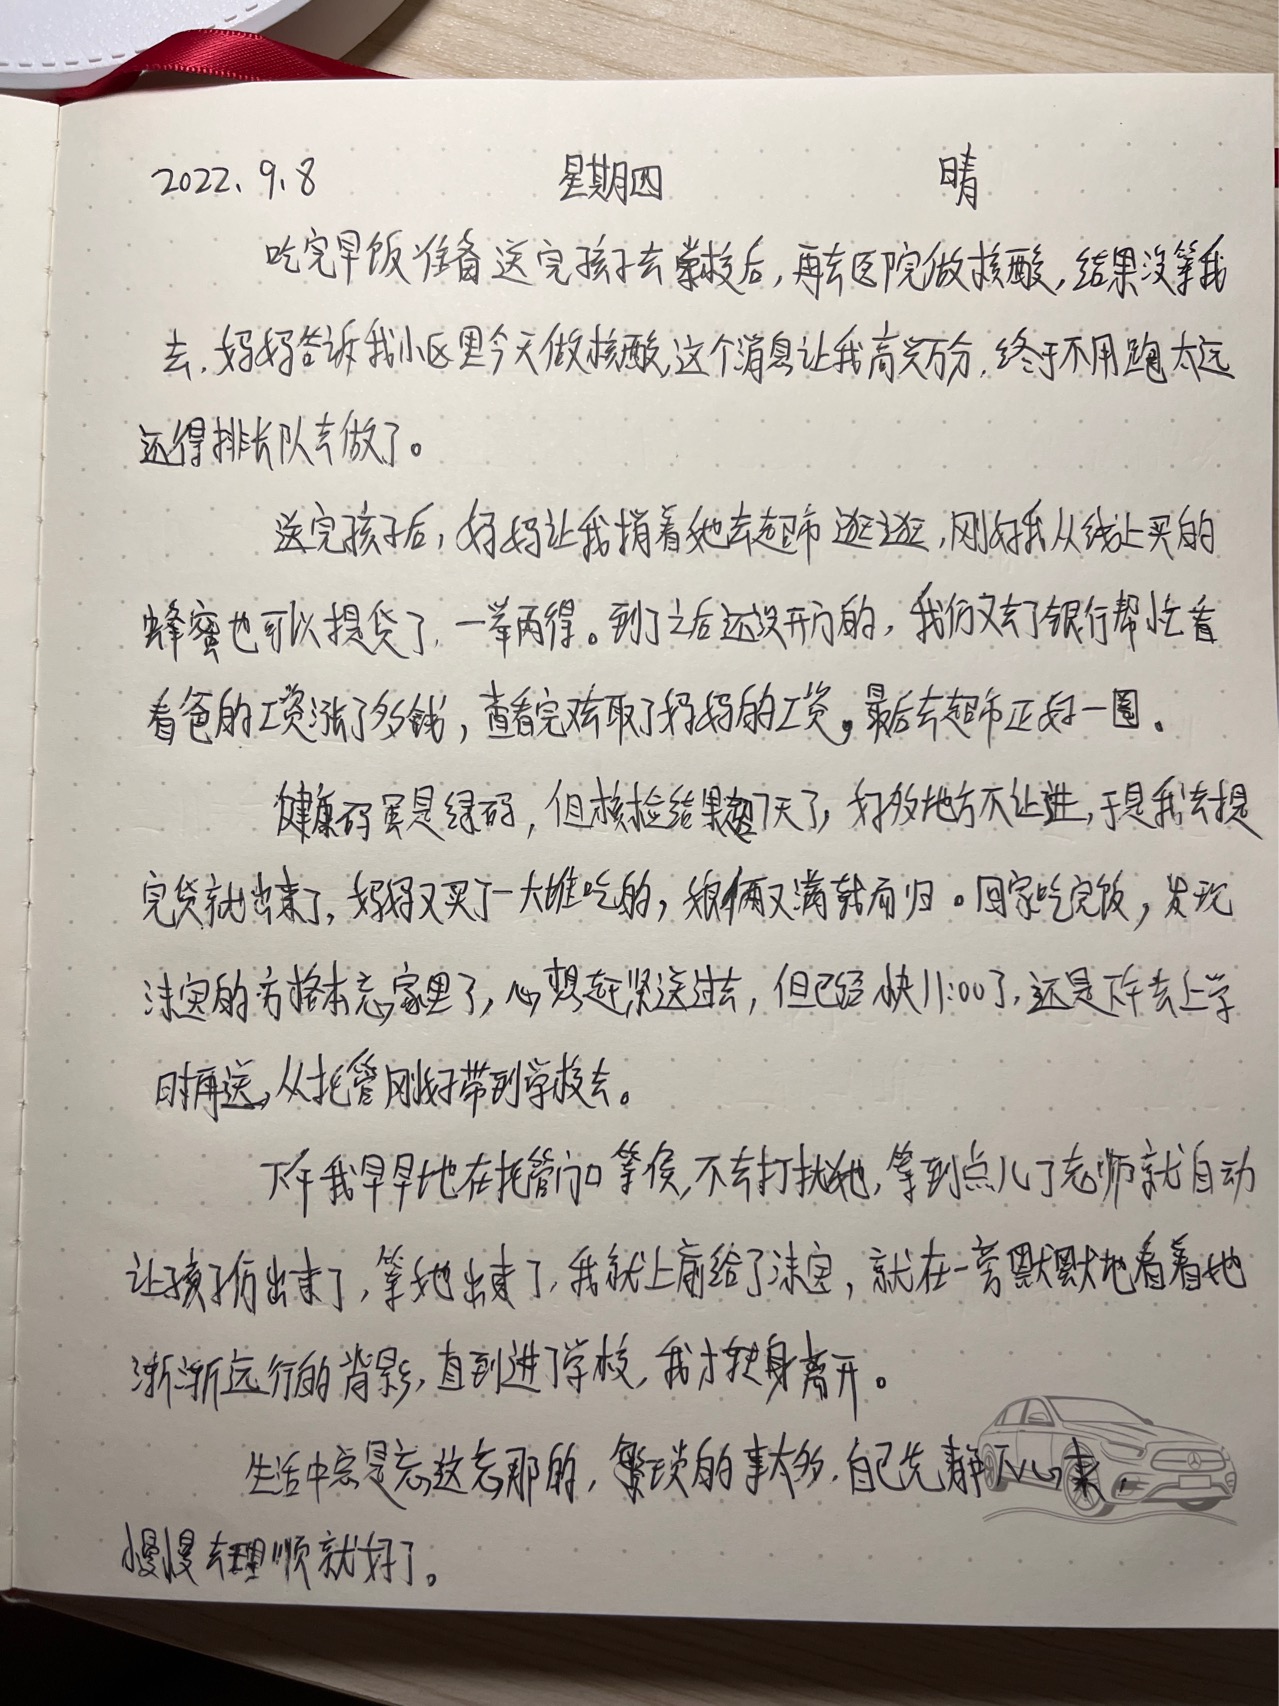 2022.9.8 星期四 晴
吃完早饭准备送完孩子去学校后,再去医院做核酸,结果没等我
去,妈妈告诉我小区里今天做核酸,这个消息让我高兴万分,终于不用跑太远
还得排长队去做了。
送完孩子后,妈妈让我捎着她去超市逛逛,刚好我从线上买的
蜂蜜也可以提货了,一举两得。到了之后还没开门的,我们又去了银行帮忙看
看爸的工资涨了多钱,查看完又去取了妈妈的工资。最后去超市正好一圈。
健康码虽是绿码,但核检结果超7天了,好多地方不让进,于是我去提
完货就出来了,妈妈又买了一大堆吃的,娘俩又满载而归。回家吃完饭,发现
沫宝的方格本忘家里了,心想赶紧送过去,但已经快11:00了,还是下午去上学
时再送,从托管刚好带到学校去。
下午我早早地在托管门口等侯,不去打扰她,等到点儿了老师就自动
让孩子们出来了,等她出来了,我就上前给了沫宝,就在一旁默默地看着她
渐渐远行的背影,直到进了学校,我才转身离开。
生活中总是忘这忘那的,繁琐的事太多,自己先静下心来,
慢慢去理顺就好了。